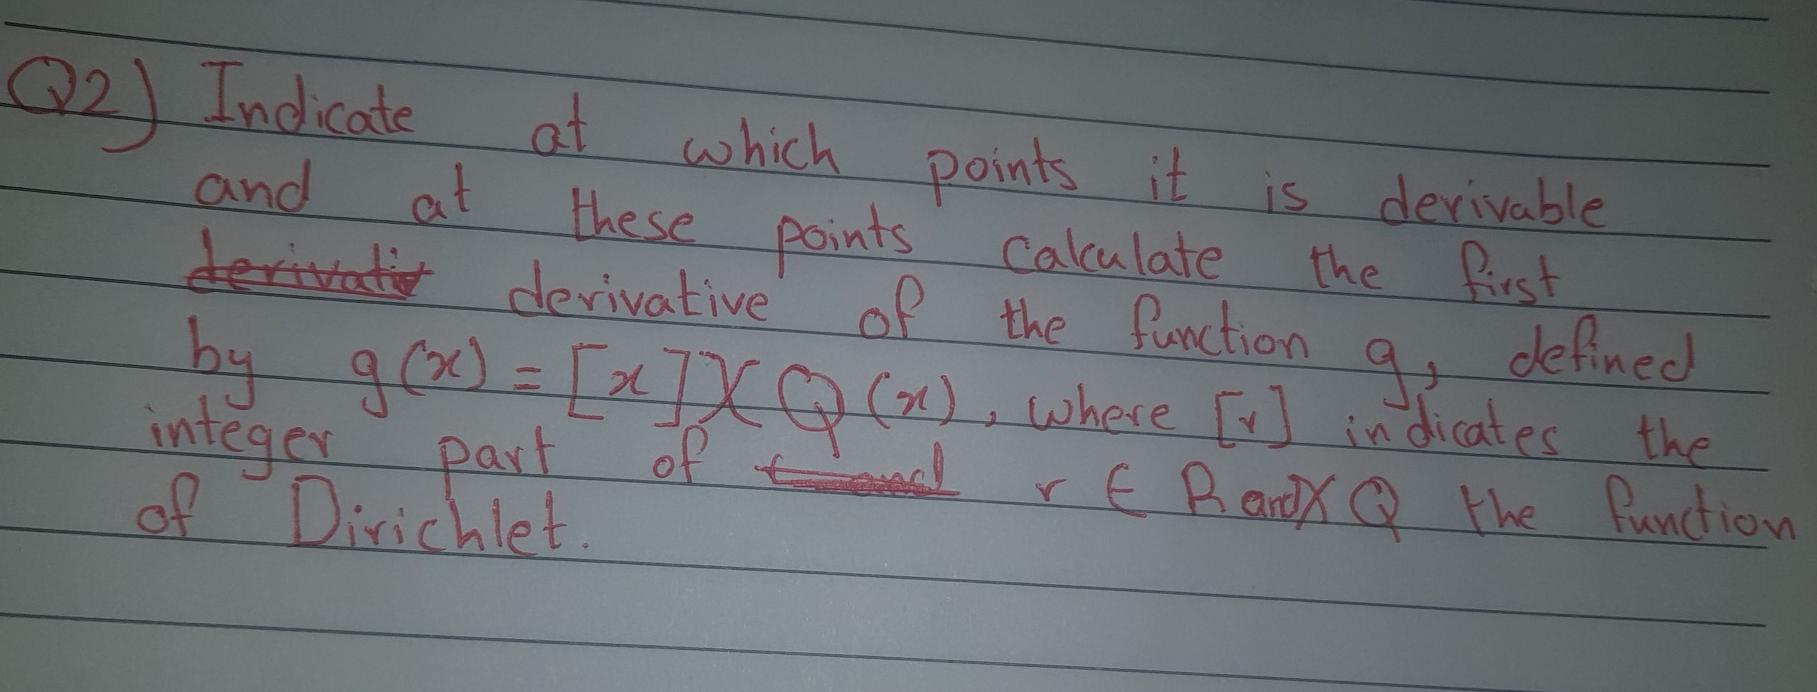 Q2) Indicate at which points it is derivable
and at these points calculate the first
derivative of the function g, defined
by g(x) = [x]χ Q (x), where [r] indicates the
integer part of r ∈ R andχ Q the function
of Dirichlet.